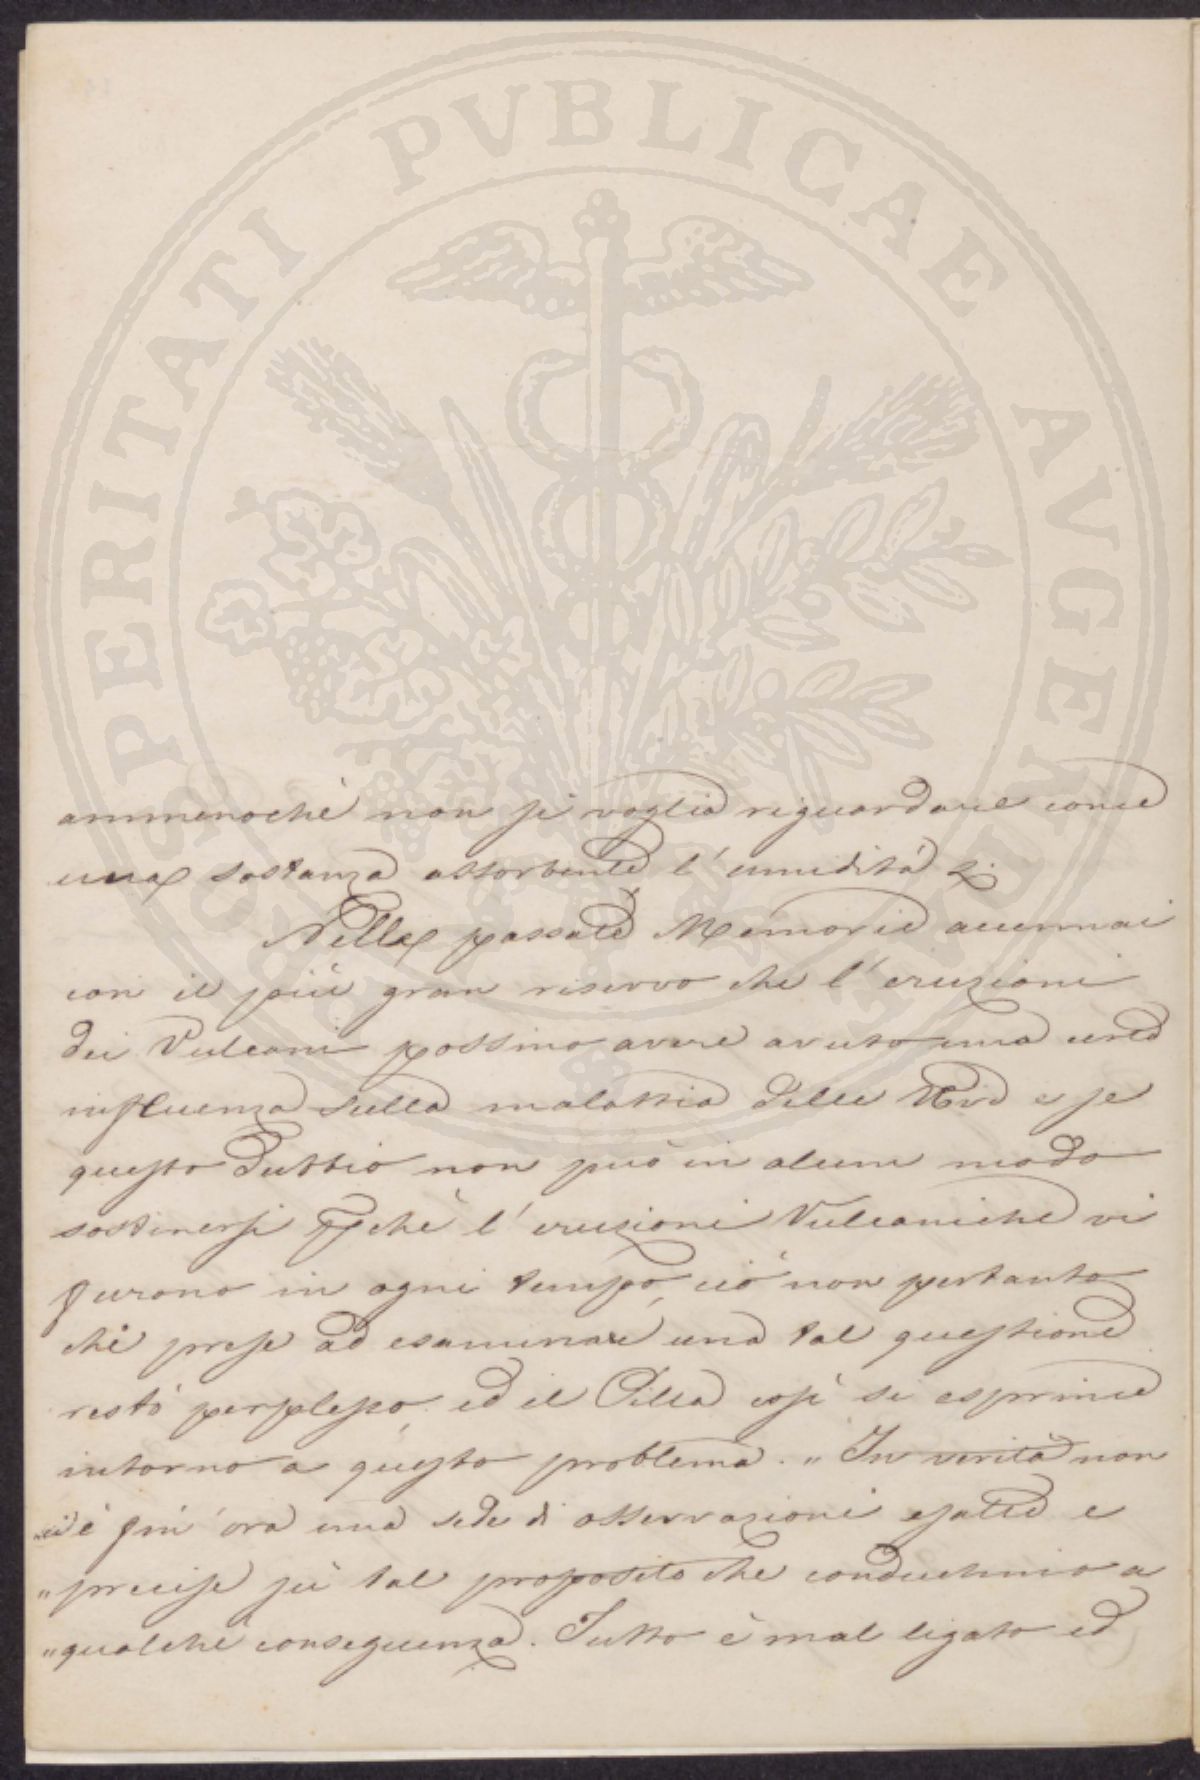 PROSPERITATI PVBLICAE AVGENDAE
ammenochè non si voglia riguardare come
una sostanza assorbente l'umidità
Nella passata Memoria accennai
con il più gran riservo che l'eruzioni
dei Vulcani possino avere avuto una certa
influenza sulla malattia delle Uve e se
questo dubbio non può in alcun modo
sostenersi perchè l'eruzioni Vulcaniche vi
furono in ogni tempo, ciò non pertanto
chi prese ad esaminare una tal questione
restò perplesso, ed il Pilla così si esprime
intorno a questo problema. „ In verità non
„ vi è fin' ora una sede di osservazioni esatte e
„ precise sù tal proposito che conduchino a
„ qualche conseguenza. Tutto è mal ligato ed